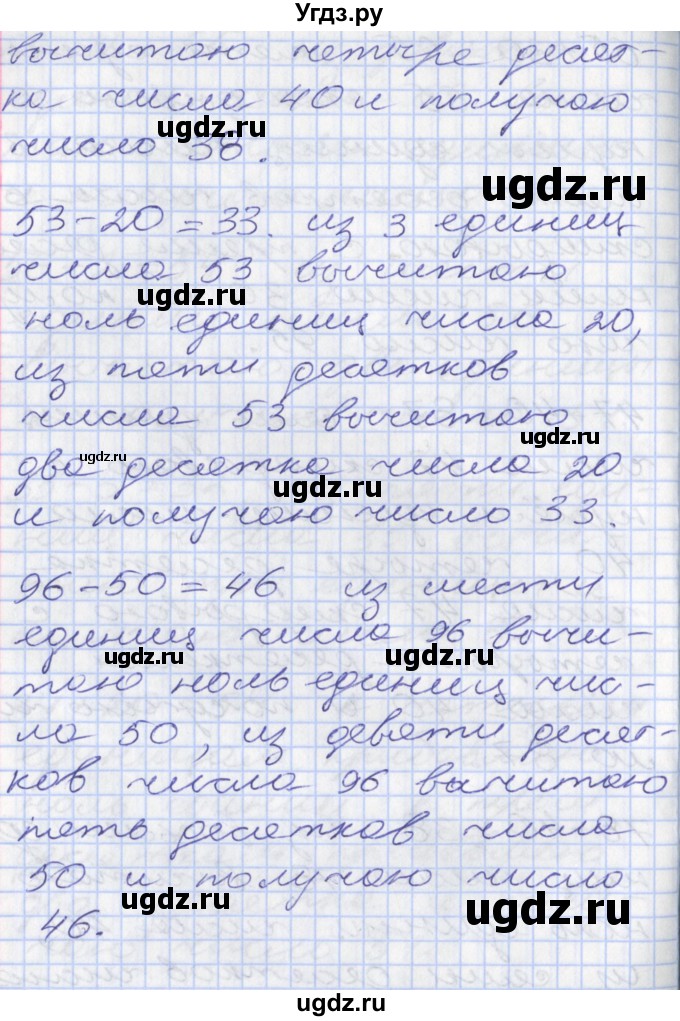 Угдз.ру
вычитаю четыре десят-
ка числа 40 и получаю
ugdz.ru
число 38.
ugdz.ru
53-20=33. из 3 единиц
числа 53 вычитаю
ugdz.ru
ноль единиц числа 20,
ugdz.ru
из пяти десятков
числа 53 вычитаю
ugdz.ru
ugdz.ru
два десятка числа 20
ugdz.ru
и получаю число 33.
96-50=46 из шести
единиц числа 96 вычи-
ugdz.ru
ugdz.ru
таю ноль единиц чис-
ла 50, из девяти десят-
ков числа 96 вычитаю
пять десятков числа
50 и получаю число
ugdz.ru
ugdz.ru
46.
ugdz.ru